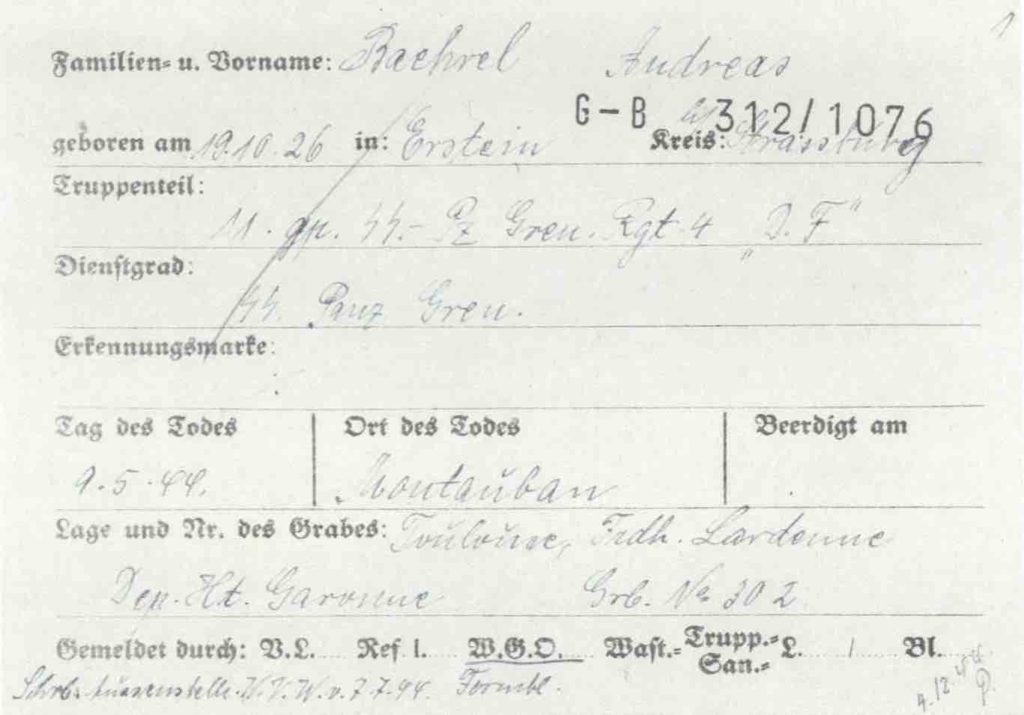 Familien- u. Vorname: Baehrel Andreas
G-B 312/1076
geboren am 19.10.26 in: Erstein Kreis: Strassburg
Truppenteil:
11. Kp. SS.- Pz Gren. Rgt. 4 „D. F"
Dienstgrad:
SS. Panz Gren.
Erkennungsmarke:
Tag des Todes Ort des Todes Beerdigt am
9.5.44. Montauban
Lage und Nr. des Grabes: Toulouse, Frdh. Lardenne
Dep. Ht. Garonne Grb. No 302
Gemeldet durch: V.L. Ref 1. W.G.O. Wast.- Trupp.- San.- L. Bl.
Schrb. Aussenstelle v. 7.7.44. Formbl.
4.12.